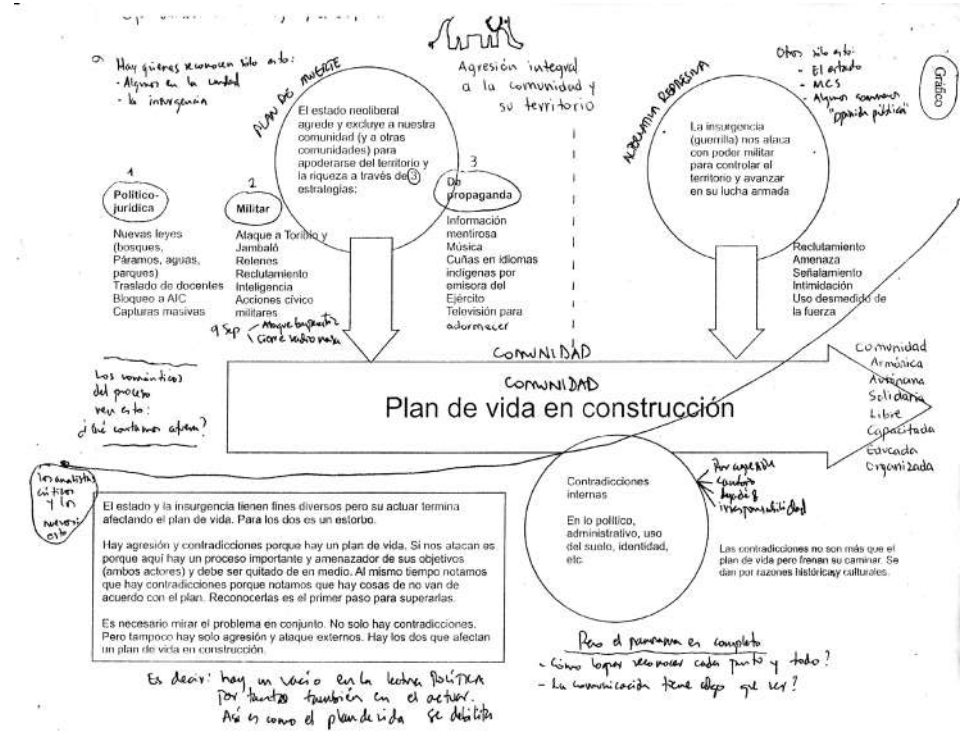 Hay quienes reconocen sólo esto:
- Algunos en la unidad
- la insurgencia
PLAN DE MUERTE
Agresión integral
a la comunidad y
su territorio
ALTERNATIVA REPRESIVA
Otros sólo esto:
- El estado
- MCS
- Algunos
"opinión pública"
Gráfico
El estado neoliberal
agrede y excluye a nuestra
comunidad (y a otras
comunidades) para
apoderarse del territorio y
la riqueza a través de 3
estrategias:
La insurgencia
(guerrilla) nos ataca
con poder militar
para controlar el
territorio y avanzar
en su lucha armada
1
Político-
jurídica
Nuevas leyes
(bosques,
Páramos, aguas,
parques)
Traslado de docentes
Bloqueo a AIC
Capturas masivas
2
Militar
Ataque a Toribío y
Jambaló
Retenes
Reclutamiento
Inteligencia
Acciones cívico
militares
9 Sep
Cierre radio nasa
3
De
propaganda
Información
mentirosa
Música
Cuñas en idiomas
indígenas por
emisora del
Ejército
Televisión para
adormecer
Reclutamiento
Amenaza
Señalamiento
Intimidación
Uso desmedido de
la fuerza
COMUNIDAD
COMUNIDAD
Plan de vida en construcción
Comunidad
Armónica
Autónoma
Solidaria
Libre
Capacitada
Educada
Organizada
Los románticos
del proceso
ven esto:
¿Qué contamos afuera?
los analistas
críticos
y los
esto
El estado y la insurgencia tienen fines diversos pero su actuar termina
afectando el plan de vida. Para los dos es un estorbo.
Hay agresión y contradicciones porque hay un plan de vida. Si nos atacan es
porque aquí hay un proceso importante y amenazador de sus objetivos
(ambos actores) y debe ser quitado de en medio. Al mismo tiempo notamos
que hay contradicciones porque notamos que hay cosas de no van de
acuerdo con el plan. Reconocerlas es el primer paso para superarlas.
Es necesario mirar el problema en conjunto. No solo hay contradicciones.
Pero tampoco hay solo agresión y ataque externos. Hay los dos que afectan
un plan de vida en construcción.
Contradicciones
internas
En lo político,
administrativo, uso
del suelo, identidad,
etc.
Por
irresponsabilidad
Las contradicciones no son más que el
plan de vida pero frenan su caminar. Se
dan por razones históricas y culturales.
Pero el panorama es completo
- Cómo lograr reconocer cada punto y todo?
- La comunicación tiene algo que ver?
Es decir: hay un vacío en la lectura POLÍTICA
Por tanto también en el actuar.
Así es como el plan de vida se debilita